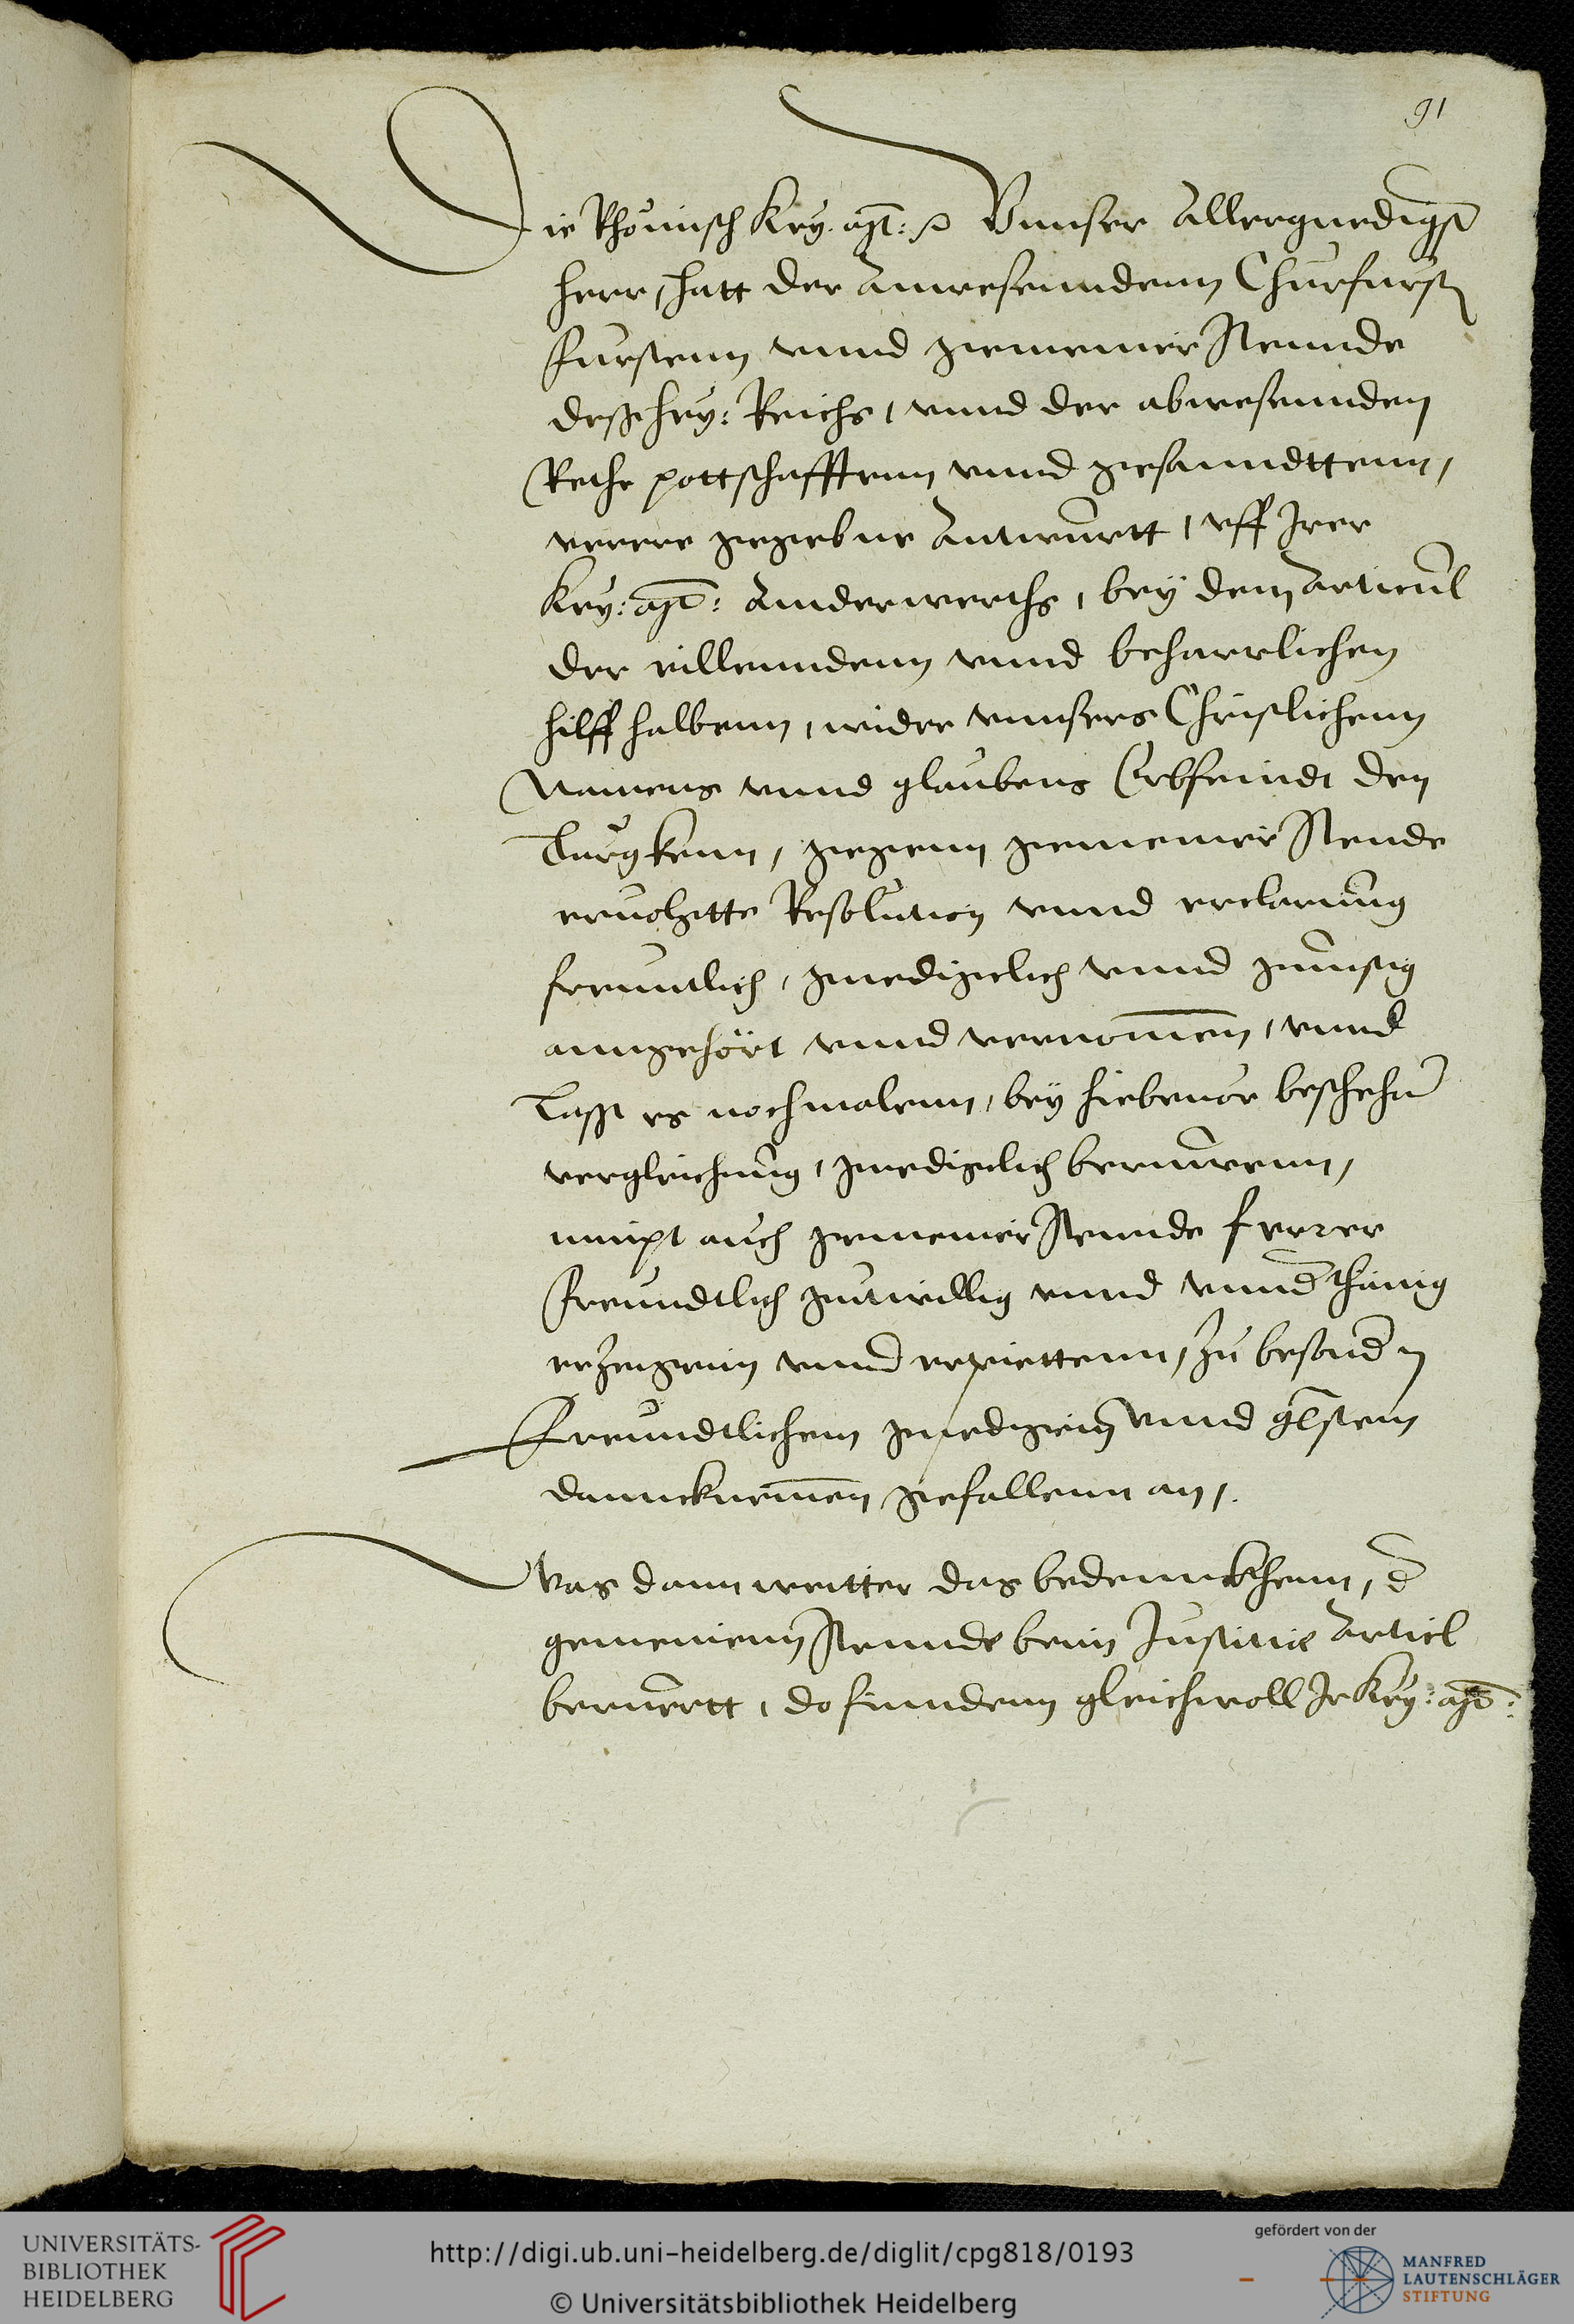 91
Die Rhömisch Key. Mt: ⁊c Vnnser Allergnedigst
herr, hatt der Anwesenndenn Churfürstn
fürstenn vnnd gemeiner Stennde
deß hey: Reichs, vnnd der abwesennden
Rethe pottschafftenn vnnd gesanndttenn,
verere gegebne Antwurtt, vff Irer
Key: Mt: Anderwerths, bey dem Articul
der eillenndenn vnnd beharrlichen
hilff halbenn, wider vnnsers Christlichenn
Namens vnnd glaubens Erbfeindt den
Turgkenn, gegenn gemeiner Stende
ervolgtte Resolution vnnd erclarung
freuntlich, gnediglich vnnd gunstig
anngehört vnnd vernomen, vnnd
Lasst es nochmalenn, bey hiebeuor beschehner
vergleichung, gnediglich beruwenn,
nimpt auch gemeiner Stennde ferrer
freundtlich gutwillig vnnd vnnd'thänig
erzeigenn vnnd erpiettenn, zu besond'n
Freundtlichem gnedigem vnnd g
dannckneman gefallenn an,.
Was dann weitter das bedennckhenn, d'
gemeinenn Stennde beim Justitie Articl
berurtt, do finndenn gleichwoll Ir Key: Mt:
UNIVERSITÄTS-
BIBLIOTHEK
HEIDELBERG
http://digi.ub.uni-heidelberg.de/diglit/cpg818/0193
© Universitätsbibliothek Heidelberg
gefördert von der
MANFRED
LAUTENSCHLÄGER
STIFTUNG